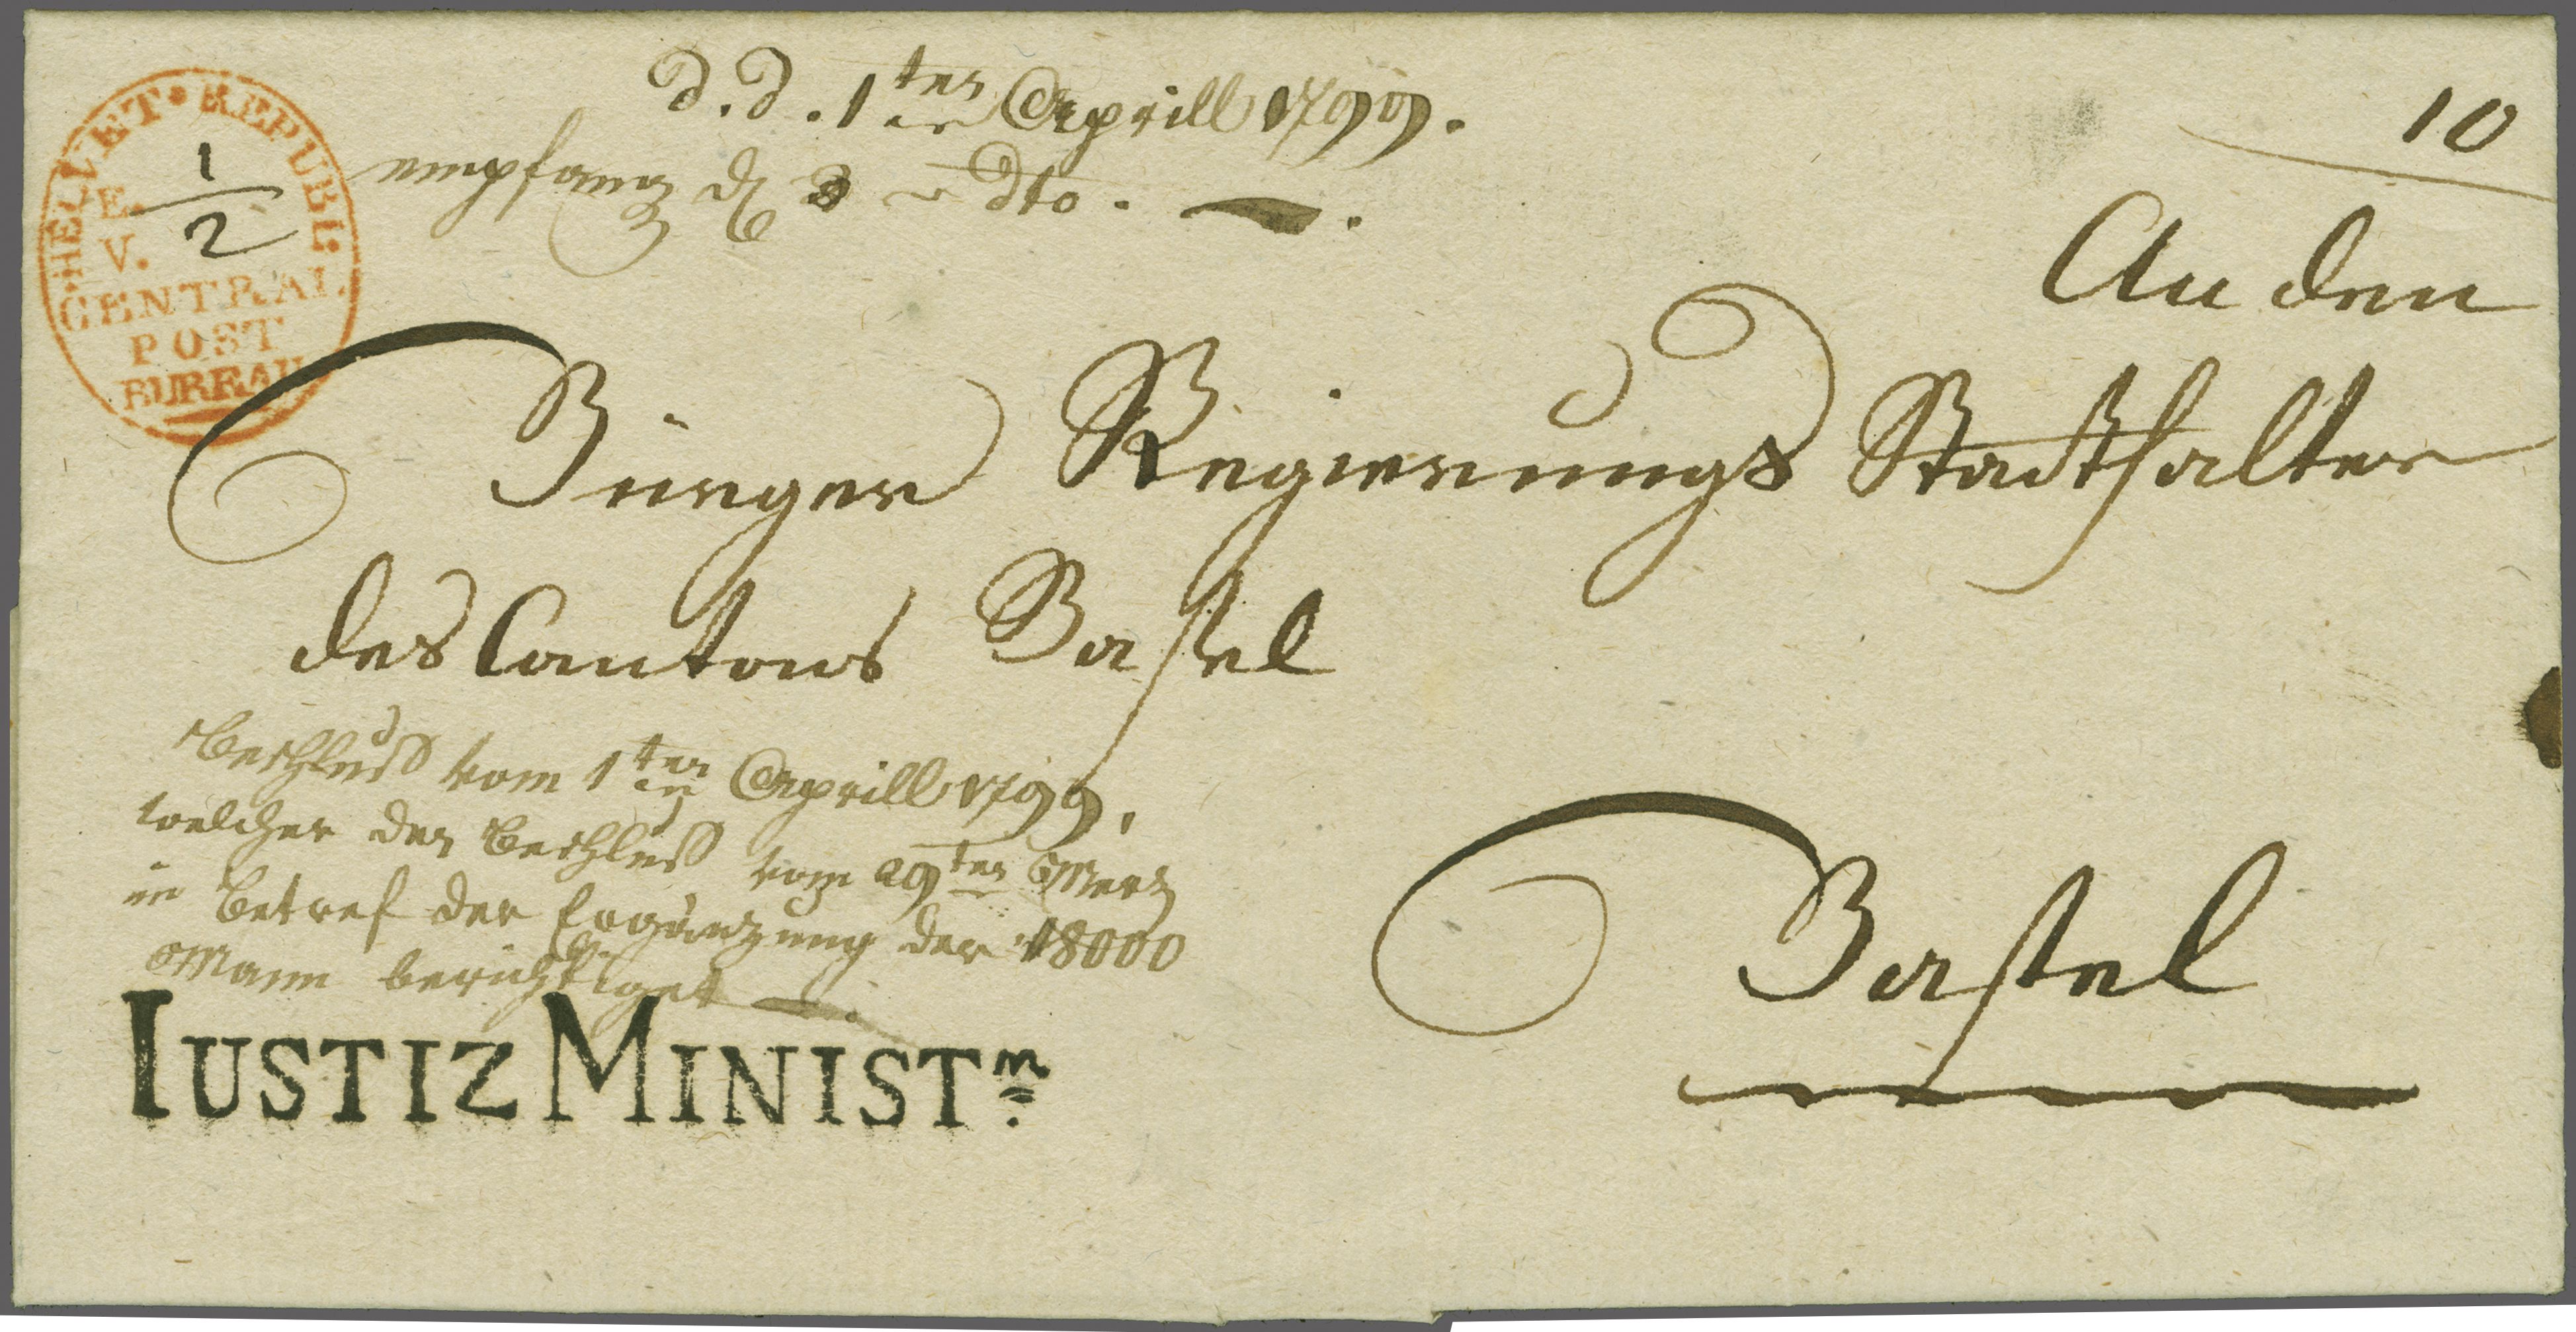 d. d. 1ten Aprill 1799.
empfang d 3 dto.
10
HELVET. REPUBL.
E.
V.
CENTRAL
POST
BUREAU
1/2
An den
Bürger Regierungs Statthalter
des Cantons Basel
Beschluss vom 1ten Aprill 1799,
welcher den Beschluss vom 29ten Merz
in Betref der Ergänzung der 18000
Mann berichtiget
Basel
IUSTIZ MINISTm